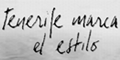 Tenerife marca
el estilo